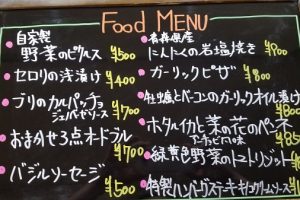 Food MENU
自家製
野菜のピクルス ¥500
セロリの浅漬け ¥400
ブリのカルパッチョ
ジュノベーゼソース ¥700
おまかせ3点オードブル
¥700
バジルソーセージ
¥500
青森県産
にんにくの岩塩焼き ¥700
ガーリックピザ ¥800
牡蠣とベーコンのガーリックオイル漬け
ホタルイカと菜の花のペンネ
アラビアータ味
緑黄色野菜のトマトリゾット
特製ハンバーグステーキ